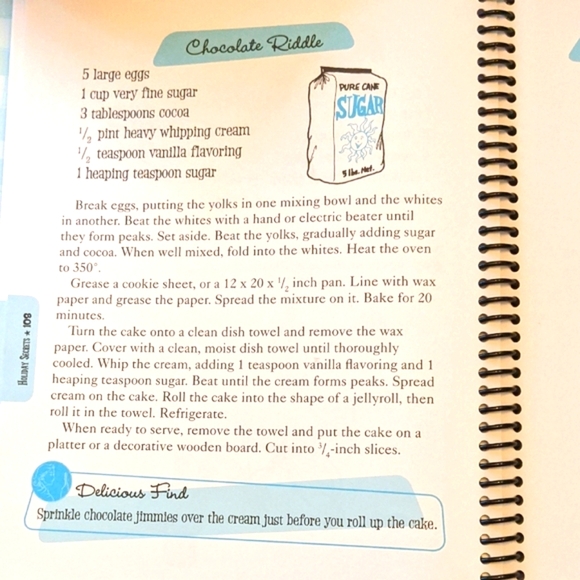 Chocolate Riddle
5 large eggs
1 cup very fine sugar
3 tablespoons cocoa
1/2 pint heavy whipping cream
1/2 teaspoon vanilla flavoring
1 heaping teaspoon sugar
PURE CANE
SUGAR
5 lbs. Net.
Break eggs, putting the yolks in one mixing bowl and the whites
in another. Beat the whites with a hand or electric beater until
they form peaks. Set aside. Beat the yolks, gradually adding sugar
and cocoa. When well mixed, fold into the whites. Heat the oven
to 350°.
Grease a cookie sheet, or a 12 x 20 x 1/2 inch pan. Line with wax
paper and grease the paper. Spread the mixture on it. Bake for 20
minutes.
Turn the cake onto a clean dish towel and remove the wax
paper. Cover with a clean, moist dish towel until thoroughly
cooled. Whip the cream, adding 1 teaspoon vanilla flavoring and 1
heaping teaspoon sugar. Beat until the cream forms peaks. Spread
cream on the cake. Roll the cake into the shape of a jellyroll, then
roll it in the towel. Refrigerate.
When ready to serve, remove the towel and put the cake on a
platter or a decorative wooden board. Cut into 3/4-inch slices.
Holiday Secrets ★ 109
Delicious Find
Sprinkle chocolate jimmies over the cream just before you roll up the cake.